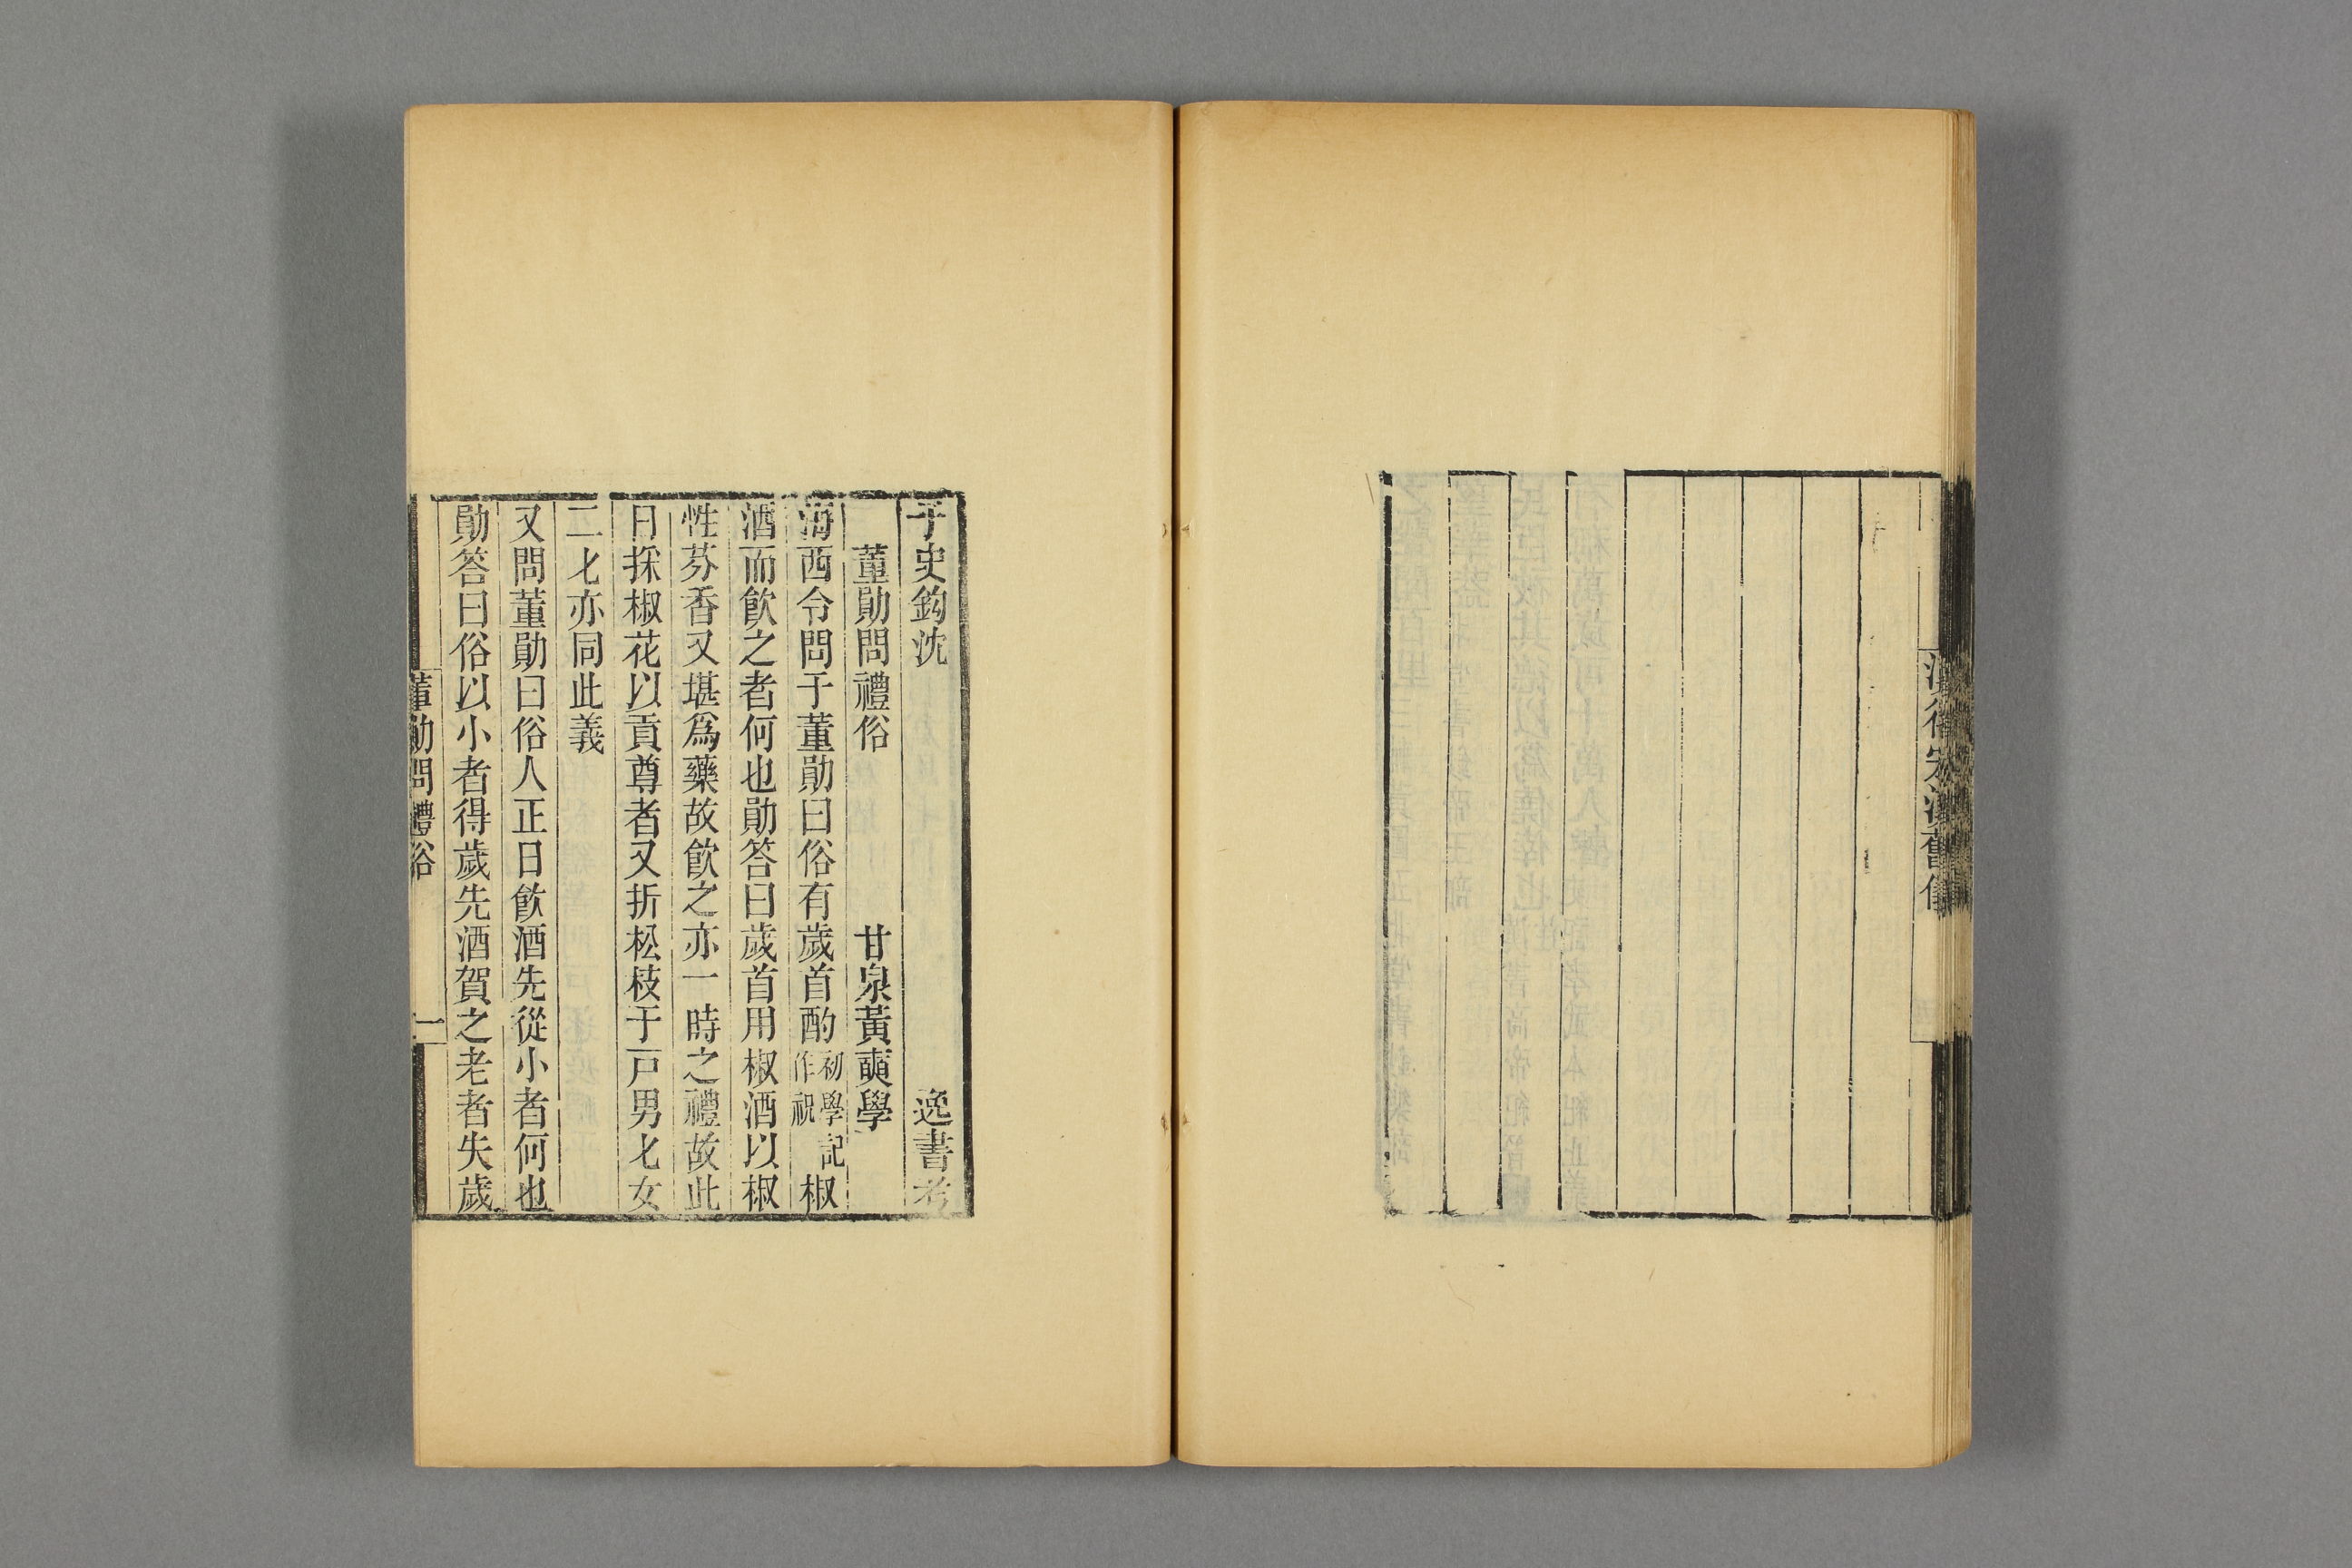 漢衞宏漢舊儀
子史鈎沈 逸書考
董勛問禮俗 甘泉黃奭學
海西令問于董勛曰俗有歲首酌初學記作祝椒
酒而飲之者何也勛答曰歲首用椒酒以椒
性芬香又堪爲藥故飲之亦一時之禮故此
日採椒花以貢尊者又折松枝于戸男七女
二七亦同此義
又問董勛曰俗人正日飲酒先從小者何也
勛答曰俗以小者得歲先酒賀之老者失歲
董勛問禮俗 一